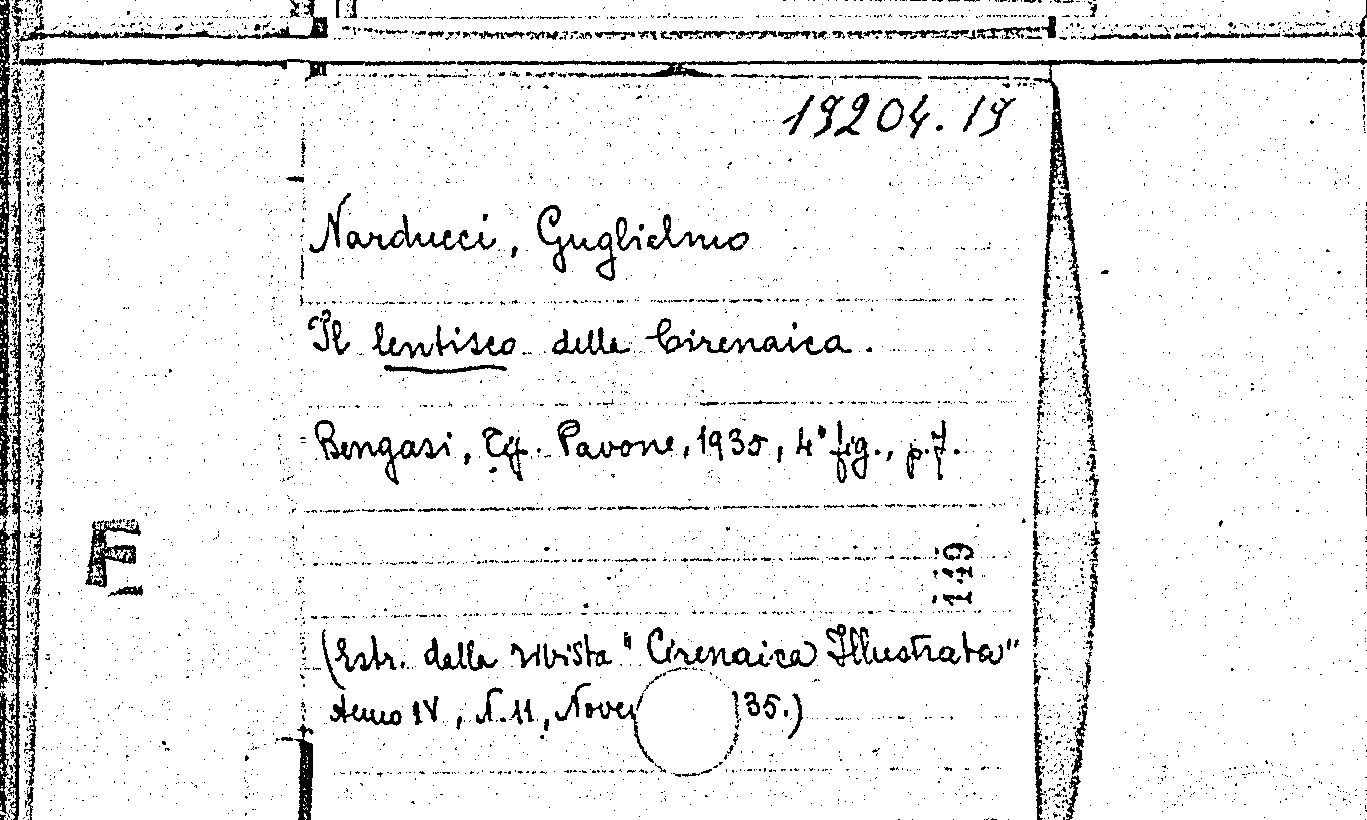 19204.19
Narducci, Guglielmo
Il lentisco della Cirenaica.
Bengasi, Tip. Pavone, 1935, 4° fig., p. 7.
E
149
(Estr. dalla rivista "Cirenaica Illustrata"
Anno IV, N. 11, Nove 35.)